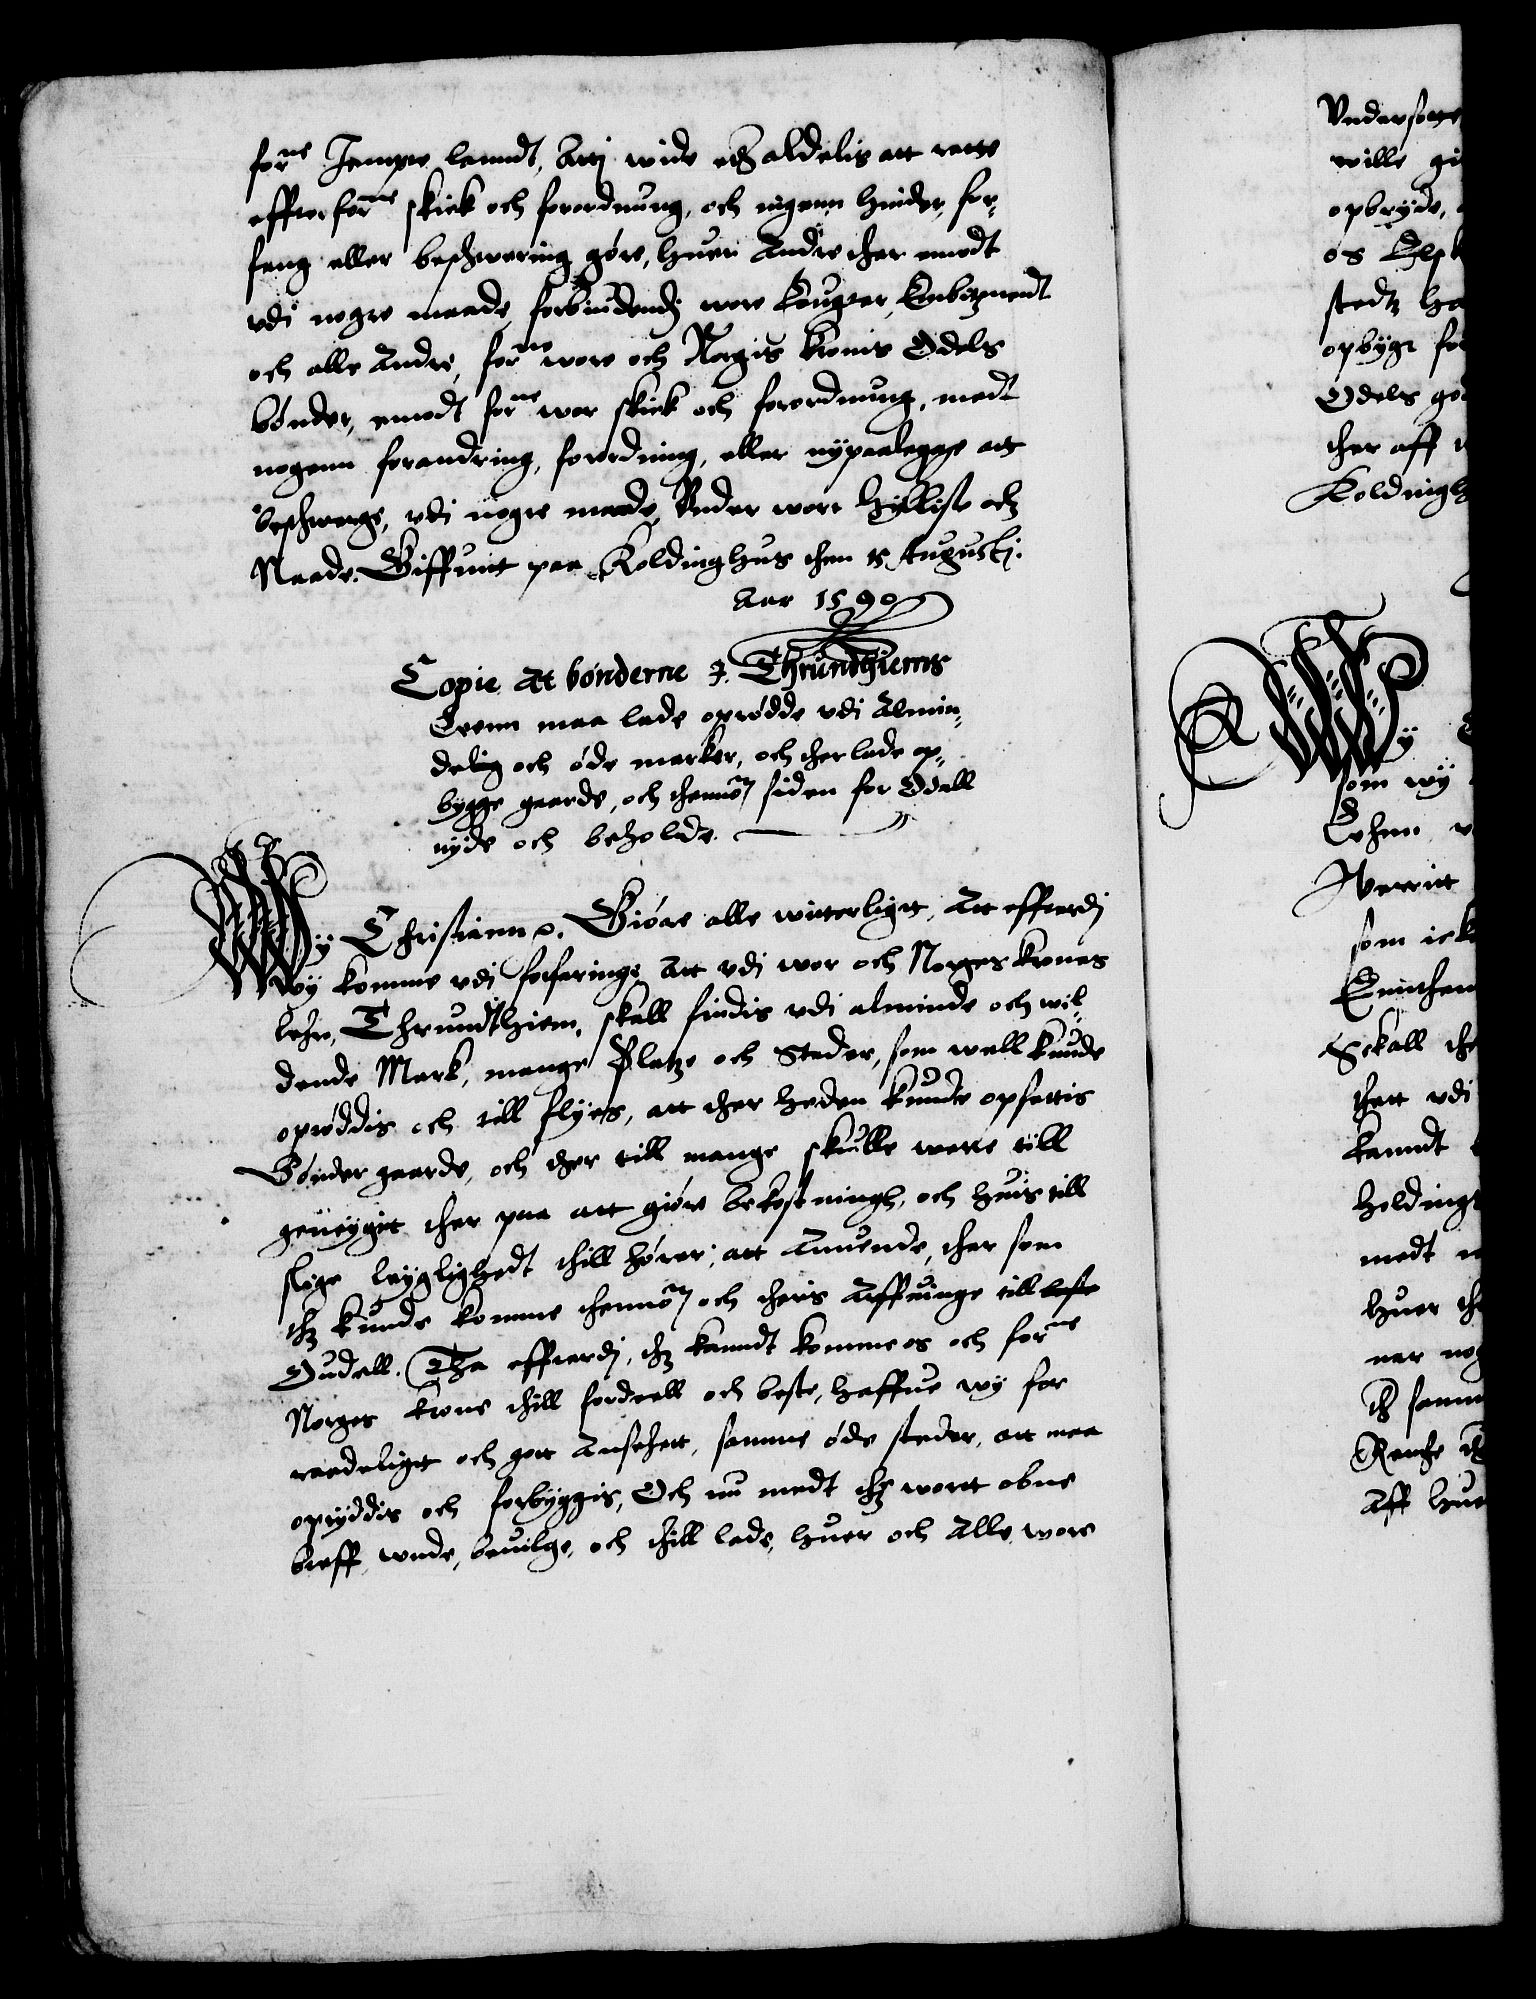 forne Jempte lanndt, Attj wide eder aldelis att rette
effter forne skick och forordnung, och ingenn hinder, for-
fang eller beschwering gøre, huer Andre ther emodt
vdi nogre maade, forbiudendj wore Leugzer, Embitzmendt
och alle Andre, forne wore och Norgis Kronis Odels
bønder, emodt forne wor skick och forordnung, medt
nogenn forandring, forordning, eller nÿpaalegge att
beschwerge, vdi nogre maade, Under wore hÿlliste och
Naade. Giffuit paa Koldinghus then 15 Augustj.
Aar 1590
Copie At bønderne J. Thrundhiems
Leenn maa lade oprødde vdi Almin-
delig och øde marker, och ther lade op-
bygge gaarde, och thennom siden for Odell
nÿde och beholde.
Wÿ Christiann &. Giøre alle witterligtt, Att effterdj
wÿ komme vdi forfaringe, Att vdi wor och Norges Krones
lehn, Thrundthiem, skall findis vdi alminde och wil-
dende Mark, mange Platze och Steder, som well kunde
oprøddis och till flÿes, att ther heden kunde opsettis
Bønder gaarde, och ther till mange skulle were till
geneÿgtt ther paa att giøre bekostningh, och huis till
slige leÿglighedt thill hører, att Anuende, ther som
thz kunde komme thennom och theris Arffuinge till beste
Oudell. Tha effterdj, thz kanndt komme os och forne
Norges Krone thill fordeell och beste, haffue wÿ for
raadeligtt och gott Ansehett, samme øde steder, att maa
oprÿddis och forbÿggis, Och nu medt thz wortt obne
breff, wnde, beuilge, och thill lade, huer och Alle, wore
Undersotte
wille gi
opbryde,
os Elsk
stedtz ha
opbÿge fo
Odels god
ther aff
Koldingh
Wÿ
som wÿ
Lehnn v
som ick
Skall the
thett vdi
kanndt
holdings
medt
huer th
ner nog
th samm
Aff hue